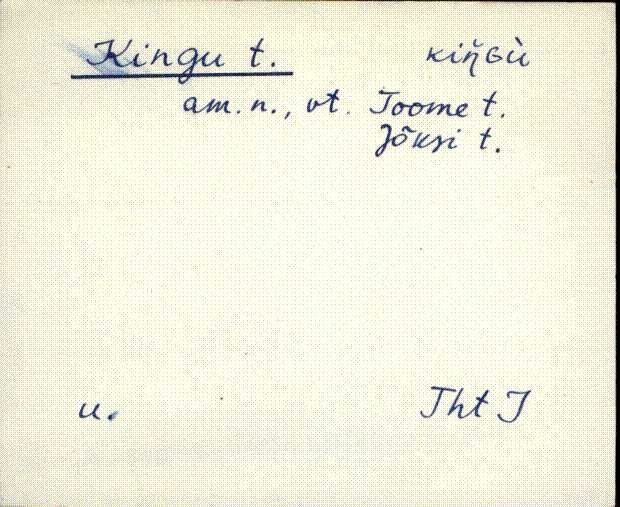 Kingu t. kiŋ̆ɢù
am. n., vt. Toome t.
Jõksi t.
u. Tht J